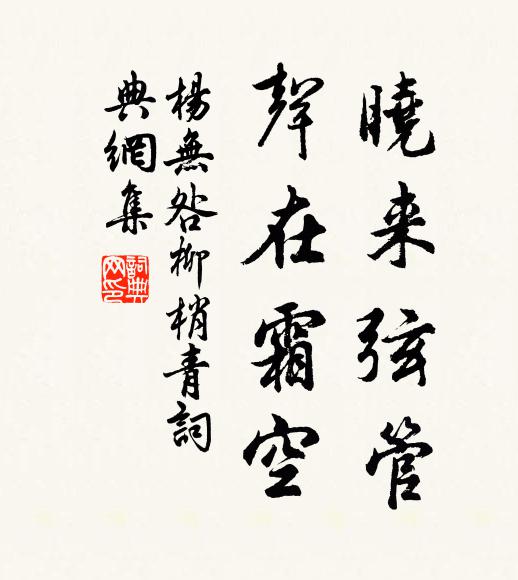 曉来弦管
聲在霜空
楊無咎柳梢青詞
典網集
詞典網印